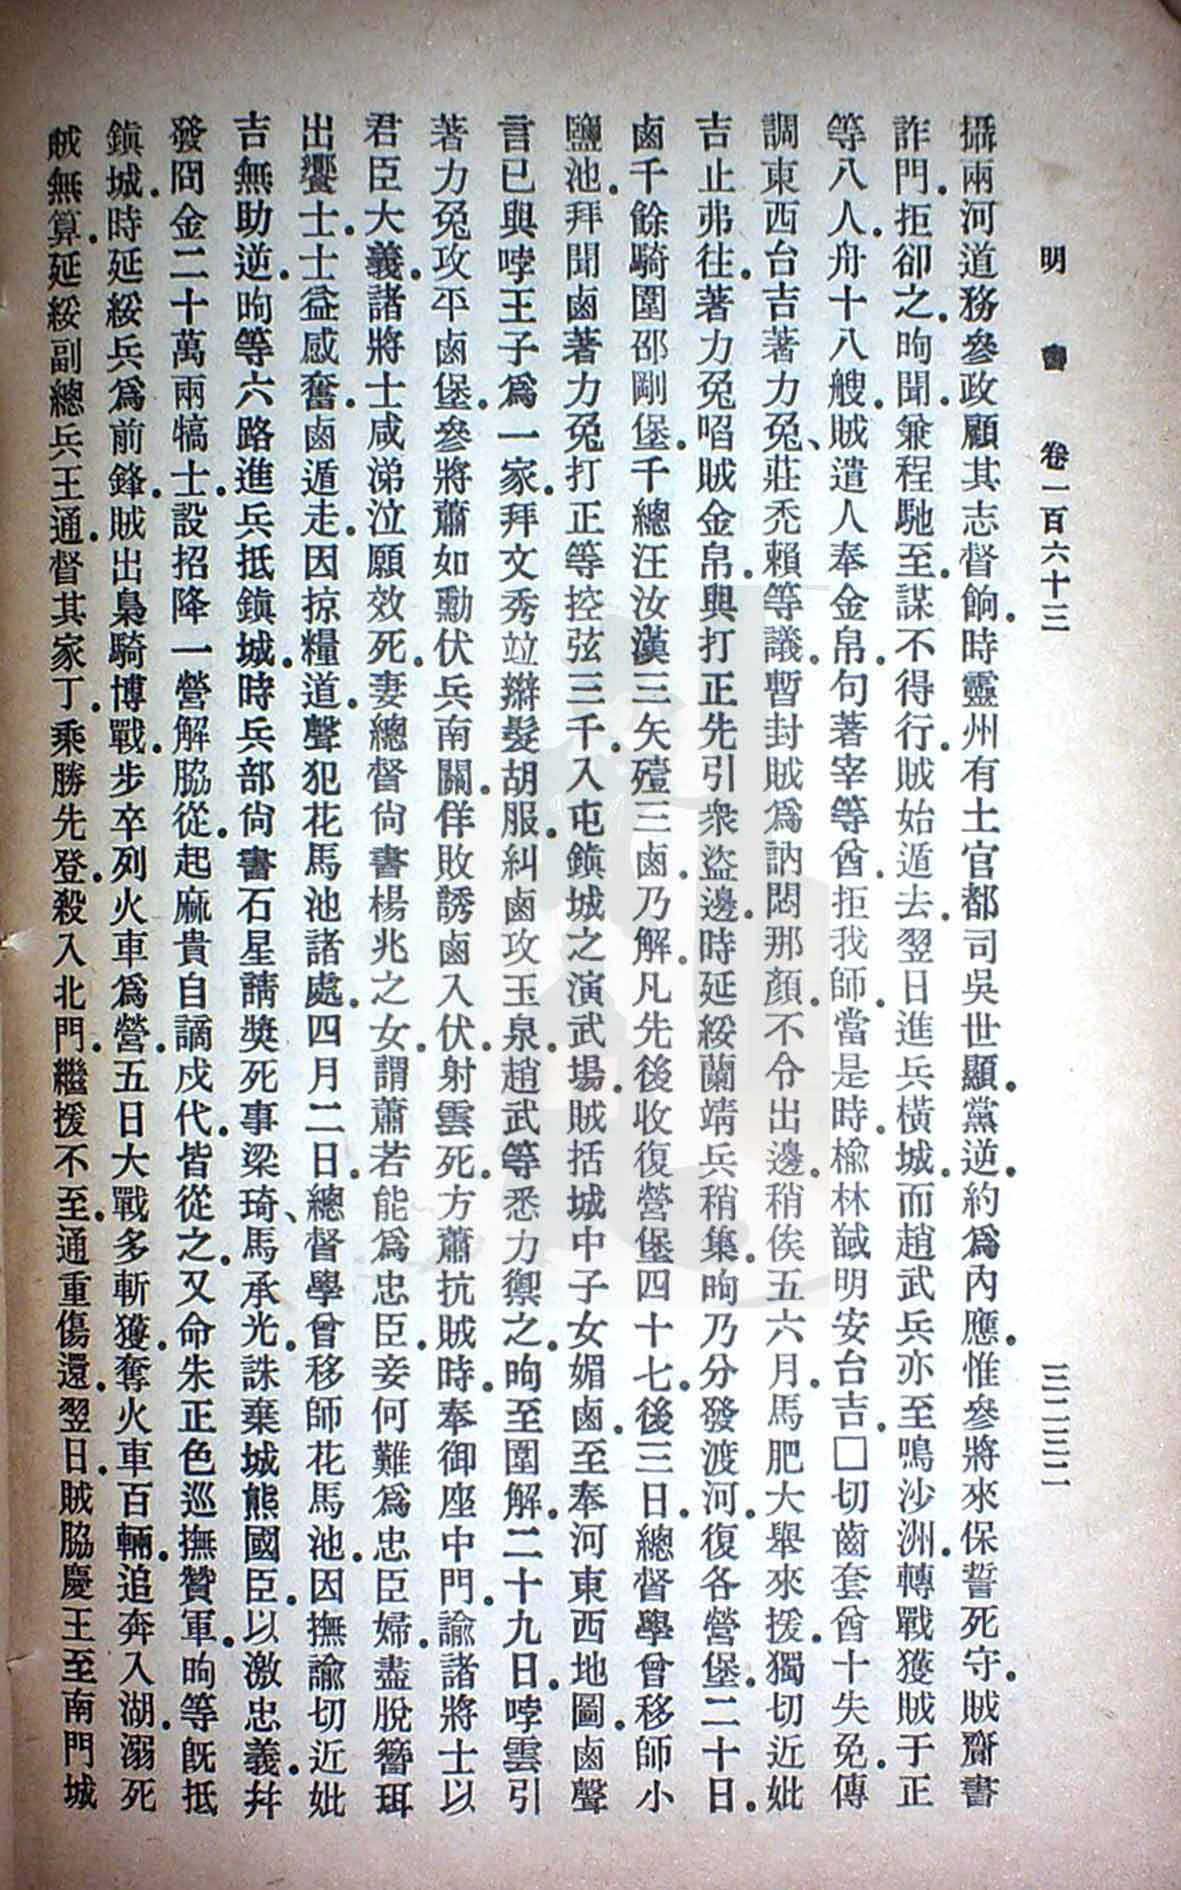 明書 卷一百六十三 三二三二
攝兩河道務參政顧其志督餉時靈州有土官都司吳世顯黨逆約爲內應惟參將來保誓死守賊齎書
詐門拒卻之昫聞兼程馳至謀不得行賊始遁去翌日進兵橫城而趙武兵亦至鳴沙洲轉戰獲賊于正
等八人舟十八艘賊遣人奉金帛句著宰等酋拒我師當是時楡林馘明安台吉□切齒套酋十失免傳
調東西台吉著力兔、莊禿賴等議暫封賊爲訥悶那顏不令出邊稍俟五六月馬肥大舉來援獨切近妣
吉止弗往著力兔啗賊金帛與打正先引衆盜邊時延綏蘭靖兵稍集昫乃分發渡河復各營堡二十日
鹵千餘騎圍邵剛堡千總汪汝漢三矢殪三鹵乃解凡先後收復營堡四十七後三日總督學曾移師小
鹽池拜聞鹵著力兔打正等控弦三千入屯鎭城之演武場賊括城中子女媚鹵至奉河東西地圖鹵聲
言已與哱王子爲一家拜文秀竝辮髮胡服糾鹵攻玉泉趙武等悉力禦之昫至圍解二十九日哱雲引
著力兔攻平鹵堡參將蕭如勳伏兵南關佯敗誘鹵入伏射雲死方蕭抗賊時奉御座中門諭諸將士以
君臣大義諸將士咸涕泣願效死妻總督尙書楊兆之女謂蕭若能爲忠臣妾何難爲忠臣婦盡脫簪珥
出饗士士益感奮鹵遁走因掠糧道聲犯花馬池諸處四月二日總督學曾移師花馬池因撫諭切近妣
吉無助逆昫等六路進兵抵鎭城時兵部尙書石星請獎死事梁琦、馬承光誅棄城熊國臣以激忠義幷
發冏金二十萬兩犒士設招降一營解脇從起麻貴自謫戍代皆從之又命朱正色巡撫贊軍昫等旣抵
鎭城時延綏兵爲前鋒賊出梟騎博戰步卒列火車爲營五日大戰多斬獲奪火車百輛追奔入湖溺死
賊無算延綏副總兵王通督其家丁乘勝先登殺入北門繼援不至通重傷還翌日賊脇慶王至南門城